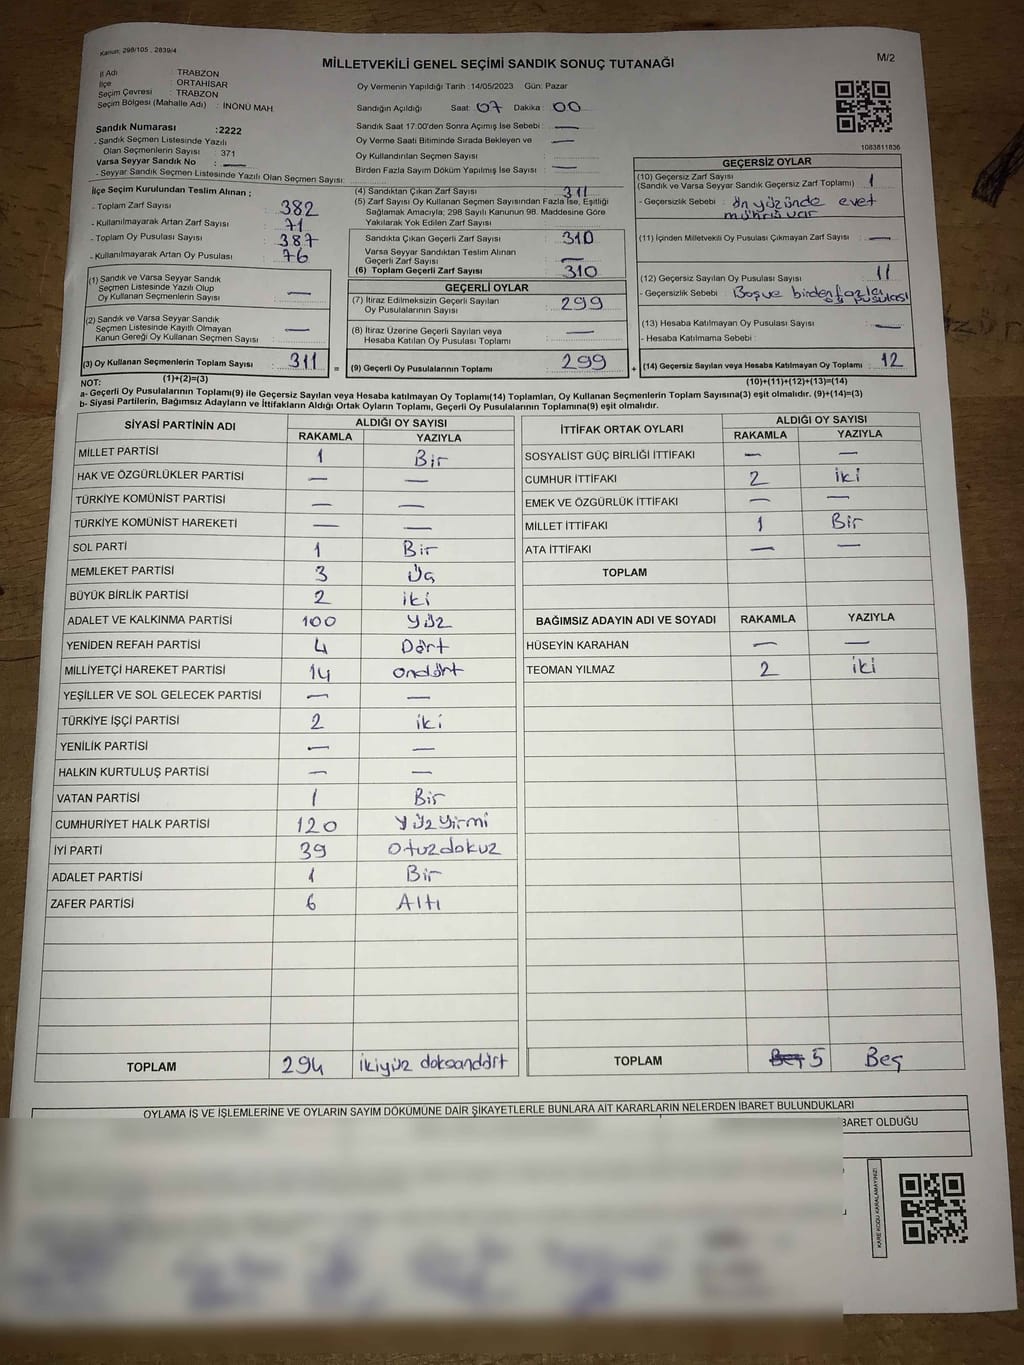 Kanun: 298/105 , 2839/4
M/2
MİLLETVEKİLİ GENEL SEÇİMİ SANDIK SONUÇ TUTANAĞI
İl Adı : TRABZON
İlçe : ORTAHİSAR
Seçim Çevresi : TRABZON
Seçim Bölgesi (Mahalle Adı) : İNÖNÜ MAH.
Oy Vermenin Yapıldığı Tarih : 14/05/2023 Gün: Pazar
Sandığın Açıldığı Saat: 07 Dakika: 00
Sandık Numarası : 2222
- Sandık Seçmen Listesinde Yazılı
Olan Seçmenlerin Sayısı : 371
Varsa Seyyar Sandık No : —
- Seyyar Sandık Seçmen Listesinde Yazılı Olan Seçmen Sayısı:
Sandık Saat 17:00'den Sonra Açımış İse Sebebi : —
Oy Verme Saati Bitiminde Sırada Bekleyen ve —
Oy Kullandırılan Seçmen Sayısı
Birden Fazla Sayım Döküm Yapılmış İse Sayısı —
1083811836
İlçe Seçim Kurulundan Teslim Alınan ;
- Toplam Zarf Sayısı : 382
- Kullanılmayarak Artan Zarf Sayısı : 71
- Toplam Oy Pusulası Sayısı : 387
- Kullanılmayarak Artan Oy Pusulası : 76
(1) Sandık ve Varsa Seyyar Sandık
Seçmen Listesinde Yazılı Olup
Oy Kullanan Seçmenlerin Sayısı : —
(2) Sandık ve Varsa Seyyar Sandık
Seçmen Listesinde Kayıtlı Olmayan
Kanun Gereği Oy Kullanan Seçmen Sayısı : —
(3) Oy Kullanan Seçmenlerin Toplam Sayısı : 311
(1)+(2)=(3)
(4) Sandıktan Çıkan Zarf Sayısı : 311
(5) Zarf Sayısı Oy Kullanan Seçmen Sayısından Fazla İse, Eşitliği
Sağlamak Amacıyla; 298 Sayılı Kanunun 98. Maddesine Göre
Yakılarak Yok Edilen Zarf Sayısı
Sandıkta Çıkan Geçerli Zarf Sayısı : 310
Varsa Seyyar Sandıktan Teslim Alınan
Geçerli Zarf Sayısı : —
(6) Toplam Geçerli Zarf Sayısı : 310
GEÇERLİ OYLAR
(7) İtiraz Edilmeksizin Geçerli Sayılan
Oy Pusulalarının Sayısı : 299
(8) İtiraz Üzerine Geçerli Sayılan veya
Hesaba Katılan Oy Pusulası Toplamı : —
= (9) Geçerli Oy Pusulalarının Toplamı : 299 +
GEÇERSİZ OYLAR
(10) Geçersiz Zarf Sayısı
(Sandık ve Varsa Seyyar Sandık Geçersiz Zarf Toplamı) : 1
- Geçersizlik Sebebi : ön yüzünde evet
mührü var
(11) İçinden Milletvekili Oy Pusulası Çıkmayan Zarf Sayısı : —
(12) Geçersiz Sayılan Oy Pusulası Sayısı : 11
- Geçersizlik Sebebi : Boş ve birden fazla
oy pusulası
(13) Hesaba Katılmayan Oy Pusulası Sayısı : —
- Hesaba Katılmama Sebebi :
(14) Geçersiz Sayılan veya Hesaba Katılmayan Oy Toplamı : 12
(10)+(11)+(12)+(13)=(14)
NOT:
a- Geçerli Oy Pusulalarının Toplamı(9) ile Geçersiz Sayılan veya Hesaba katılmayan Oy Toplamı(14) Toplamları, Oy Kullanan Seçmenlerin Toplam Sayısına(3) eşit olmalıdır. (9)+(14)=(3)
b- Siyasi Partilerin, Bağımsız Adayların ve İttifakların Aldığı Ortak Oyların Toplamı, Geçerli Oy Pusulalarının Toplamına(9) eşit olmalıdır.
SİYASİ PARTİNİN ADI ALDIĞI OY SAYISI
RAKAMLA YAZIYLA
MİLLET PARTİSİ 1 Bir
HAK VE ÖZGÜRLÜKLER PARTİSİ — —
TÜRKİYE KOMÜNİST PARTİSİ — —
TÜRKİYE KOMÜNİST HAREKETİ — —
SOL PARTİ 1 Bir
MEMLEKET PARTİSİ 3 Üç
BÜYÜK BİRLİK PARTİSİ 2 iki
ADALET VE KALKINMA PARTİSİ 100 Yüz
YENİDEN REFAH PARTİSİ 4 Dört
MİLLİYETÇİ HAREKET PARTİSİ 14 ondört
YEŞİLLER VE SOL GELECEK PARTİSİ — —
TÜRKİYE İŞÇİ PARTİSİ 2 iki
YENİLİK PARTİSİ — —
HALKIN KURTULUŞ PARTİSİ — —
VATAN PARTİSİ 1 Bir
CUMHURİYET HALK PARTİSİ 120 Yüzyirmi
İYİ PARTİ 39 Otuzdokuz
ADALET PARTİSİ 1 Bir
ZAFER PARTİSİ 6 Altı
TOPLAM 294 ikiyüz doksandört
İTTİFAK ORTAK OYLARI ALDIĞI OY SAYISI
RAKAMLA YAZIYLA
SOSYALİST GÜÇ BİRLİĞİ İTTİFAKI — —
CUMHUR İTTİFAKI 2 iki
EMEK VE ÖZGÜRLÜK İTTİFAKI — —
MİLLET İTTİFAKI 1 Bir
ATA İTTİFAKI — —
TOPLAM
BAĞIMSIZ ADAYIN ADI VE SOYADI RAKAMLA YAZIYLA
HÜSEYİN KARAHAN — —
TEOMAN YILMAZ 2 iki
TOPLAM Beş 5 Beş
OYLAMA İŞ VE İŞLEMLERİNE VE OYLARIN SAYIM DÖKÜMÜNE DAİR ŞİKAYETLERLE BUNLARA AİT KARARLARIN NELERDEN İBARET BULUNDUKLARI
BARET OLDUĞU
KARE KODU KARALAMAYINIZ!